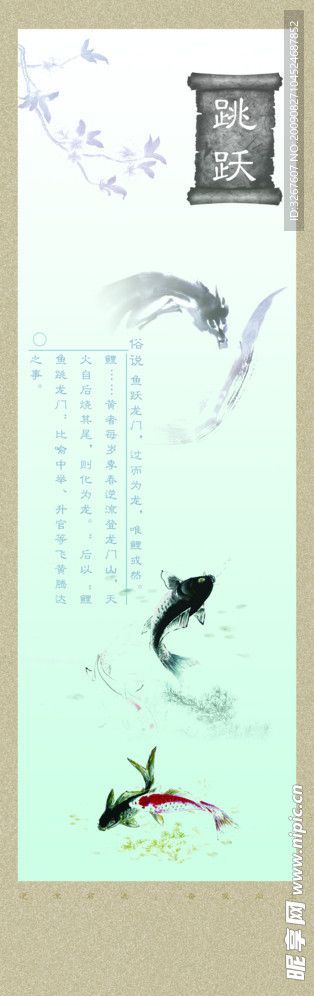 跳跃
俗说 鱼跃龙门，过而为龙，唯鲤或然。
鲤……黄者每岁季春逆流登龙门山，天
火自后烧其尾，则化为龙。：后以：鲤
鱼跳龙门：比喻中举、升官等飞黄腾达
之事。
ID:3267607 NO:20090827104524687852
昵享网 www.nipic.cn